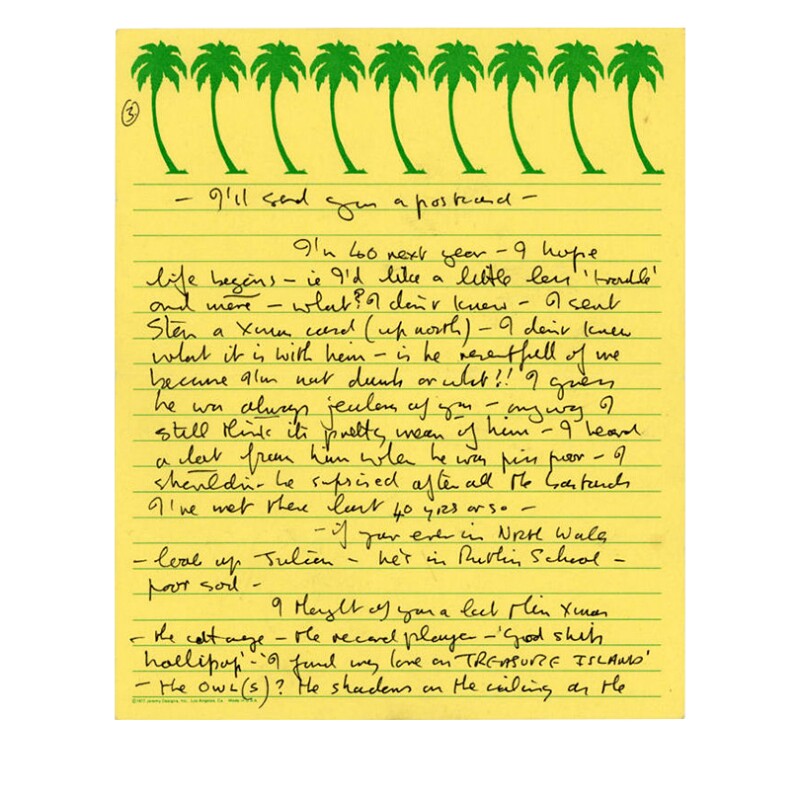 ③
- I'll send you a postcard -
I'm 40 next year - I hope
life begins - ie I'd like a little less 'trouble'
and more - what? I don't know - I sent
Stan a Xmas card (up north) - I don't know
what it is with him - is he resentfull of me
because I'm not drunk or what?! I guess
he was always jealous of you - anyway I
still think its pretty mean of him - I heard
a lot from him when he was piss poor - I
shouldn't be suprised after all the bastards
I've met these last 40 yrs or so -
- if your ever in North Wales
- look up Julian - he's in Ruthin School -
poor sod -
I thought of you a lot this Xmas
- the cottage - the record player - 'Good ship
lollipop' - 'I found my love on TREASURE ISLAND'
- the OWL(S)? the shadows on the ceiling as the
© 1977 Jeremy Designs, Inc. Los Angeles, Ca. Made in U.S.A.